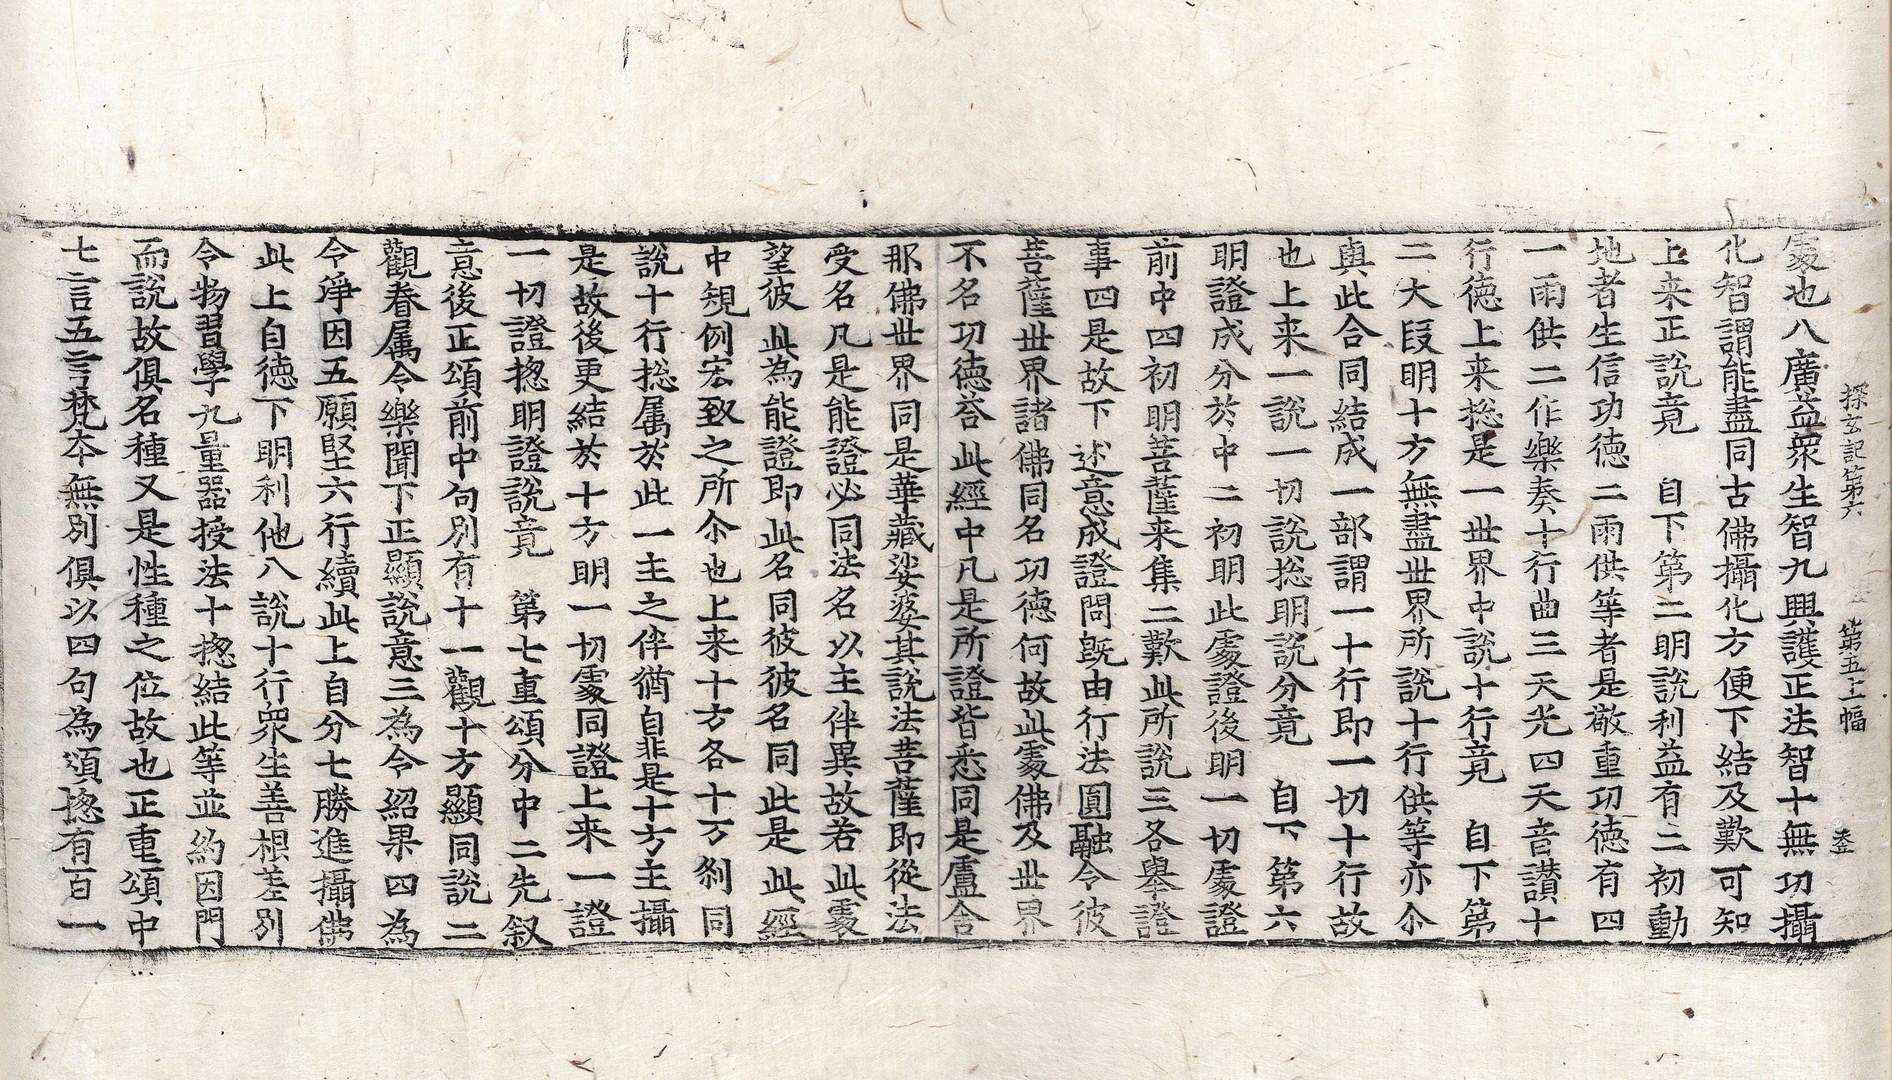 探玄記第六 第五上幅 𡊮
處也八廣益眾生智九興護正法智十無功攝
化智謂能盡同古佛攝化方便下結及歎可知
上来正說竟 自下第二明說利益有二初動
地者生信功德二雨供等者是敬重功德有四
一雨供二作樂奏十行曲三天光四天音讃十
行德上来揔是一世界中說十行竟 自下第
二大段明十方無盡世界所說十行供等亦尒
與此合同結成一部謂一十行即一切十行故
也上来一說一切說揔明說分竟 自下第六
明證成分於中二初明此處證後明一切處證
前中四初明菩薩来集二歎此所說三各舉證
事四是故下述意成證問既由行法圓融令彼
菩薩世界諸佛同名功德何故此處佛及世界
不名功德荅此經中凡是所證皆悉同是盧舍
那佛世界同是華藏娑婆其說法菩薩即從法
受名凡是能證必同法名以主伴異故若此處
望彼此為能證即此名同彼彼名同此是此經
中䂓例宏致之所尒也上来十方各十万刹同
說十行揔属於此一主之伴猶自非是十方主攝
是故後更結於十方明一切處同證上来一證
一切證揔明證說竟 第七重頌分中二先叙
意後正頌前中句別有十一觀十方顯同說二
觀眷属令樂聞下正顯說意三為令紹果四為
令淨因五願堅六行續此上自分七勝進攝佛
此上自德下明利他八說十行眾生善根差別
令物習學九量器授法十揔結此等並約因門
而說故俱名種又是性種之位故也正重頌中
七言五言梵本無別俱以四句為頌揔有百一